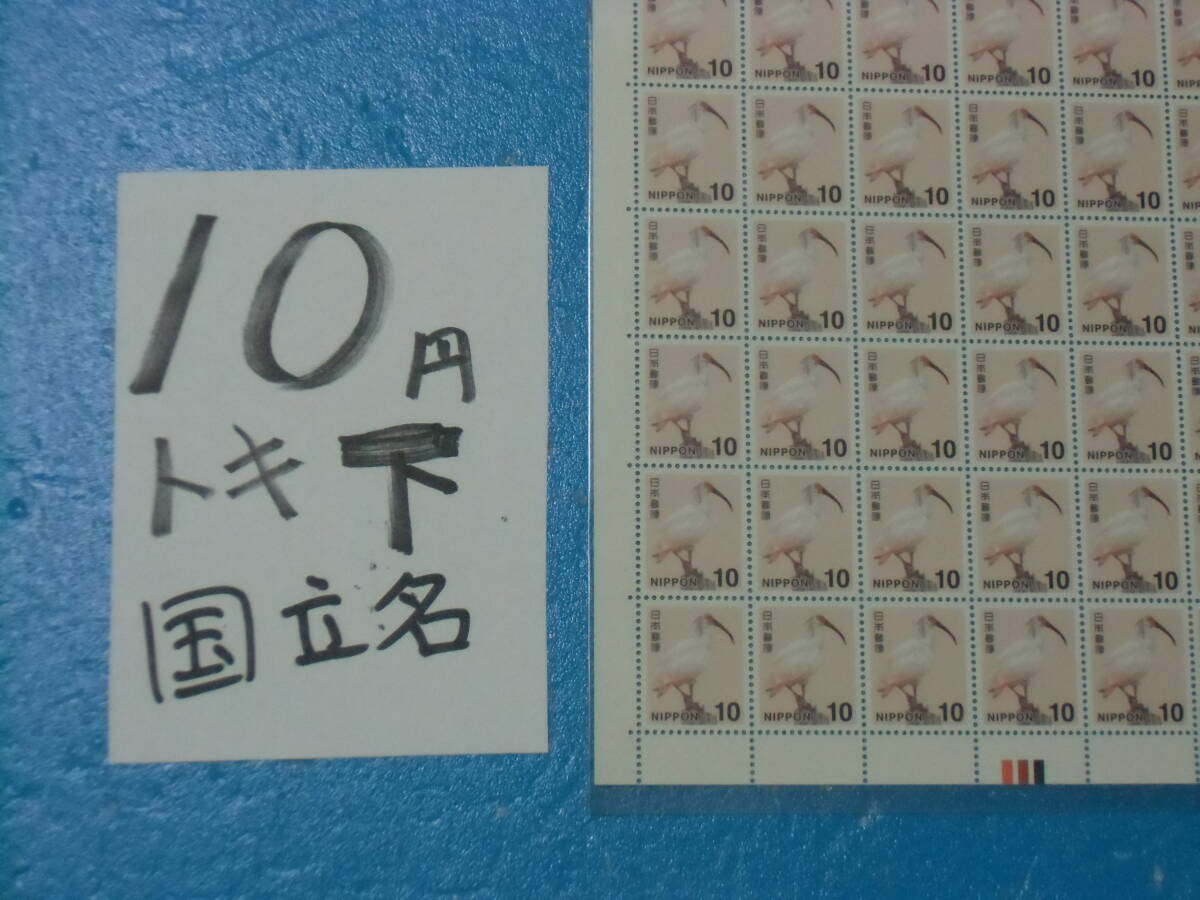 10円
トキ下
国立名
NIPPON 10 NIPPON 10 NIPPON 10 NIPPON 10 NIPPON 10
日本郵便 日本郵便 日本郵便 日本郵便 日本郵便 日本郵便
NIPPON 10 NIPPON 10 NIPPON 10 NIPPON 10 NIPPON 10
日本郵便 日本郵便 日本郵便 日本郵便 日本郵便 日本郵便
NIPPON 10 NIPPON 10 NIPPON 10 NIPPON 10 NIPPON 10
日本郵便 日本郵便 日本郵便 日本郵便 日本郵便 日本郵便
NIPPON 10 NIPPON 10 NIPPON 10 NIPPON 10 NIPPON 10
日本郵便 日本郵便 日本郵便 日本郵便 日本郵便 日本郵便
NIPPON 10 NIPPON 10 NIPPON 10 NIPPON 10 NIPPON 10
日本郵便 日本郵便 日本郵便 日本郵便 日本郵便
NIPPON 10 NIPPON 10 NIPPON 10 NIPPON 10 NIPPON 10